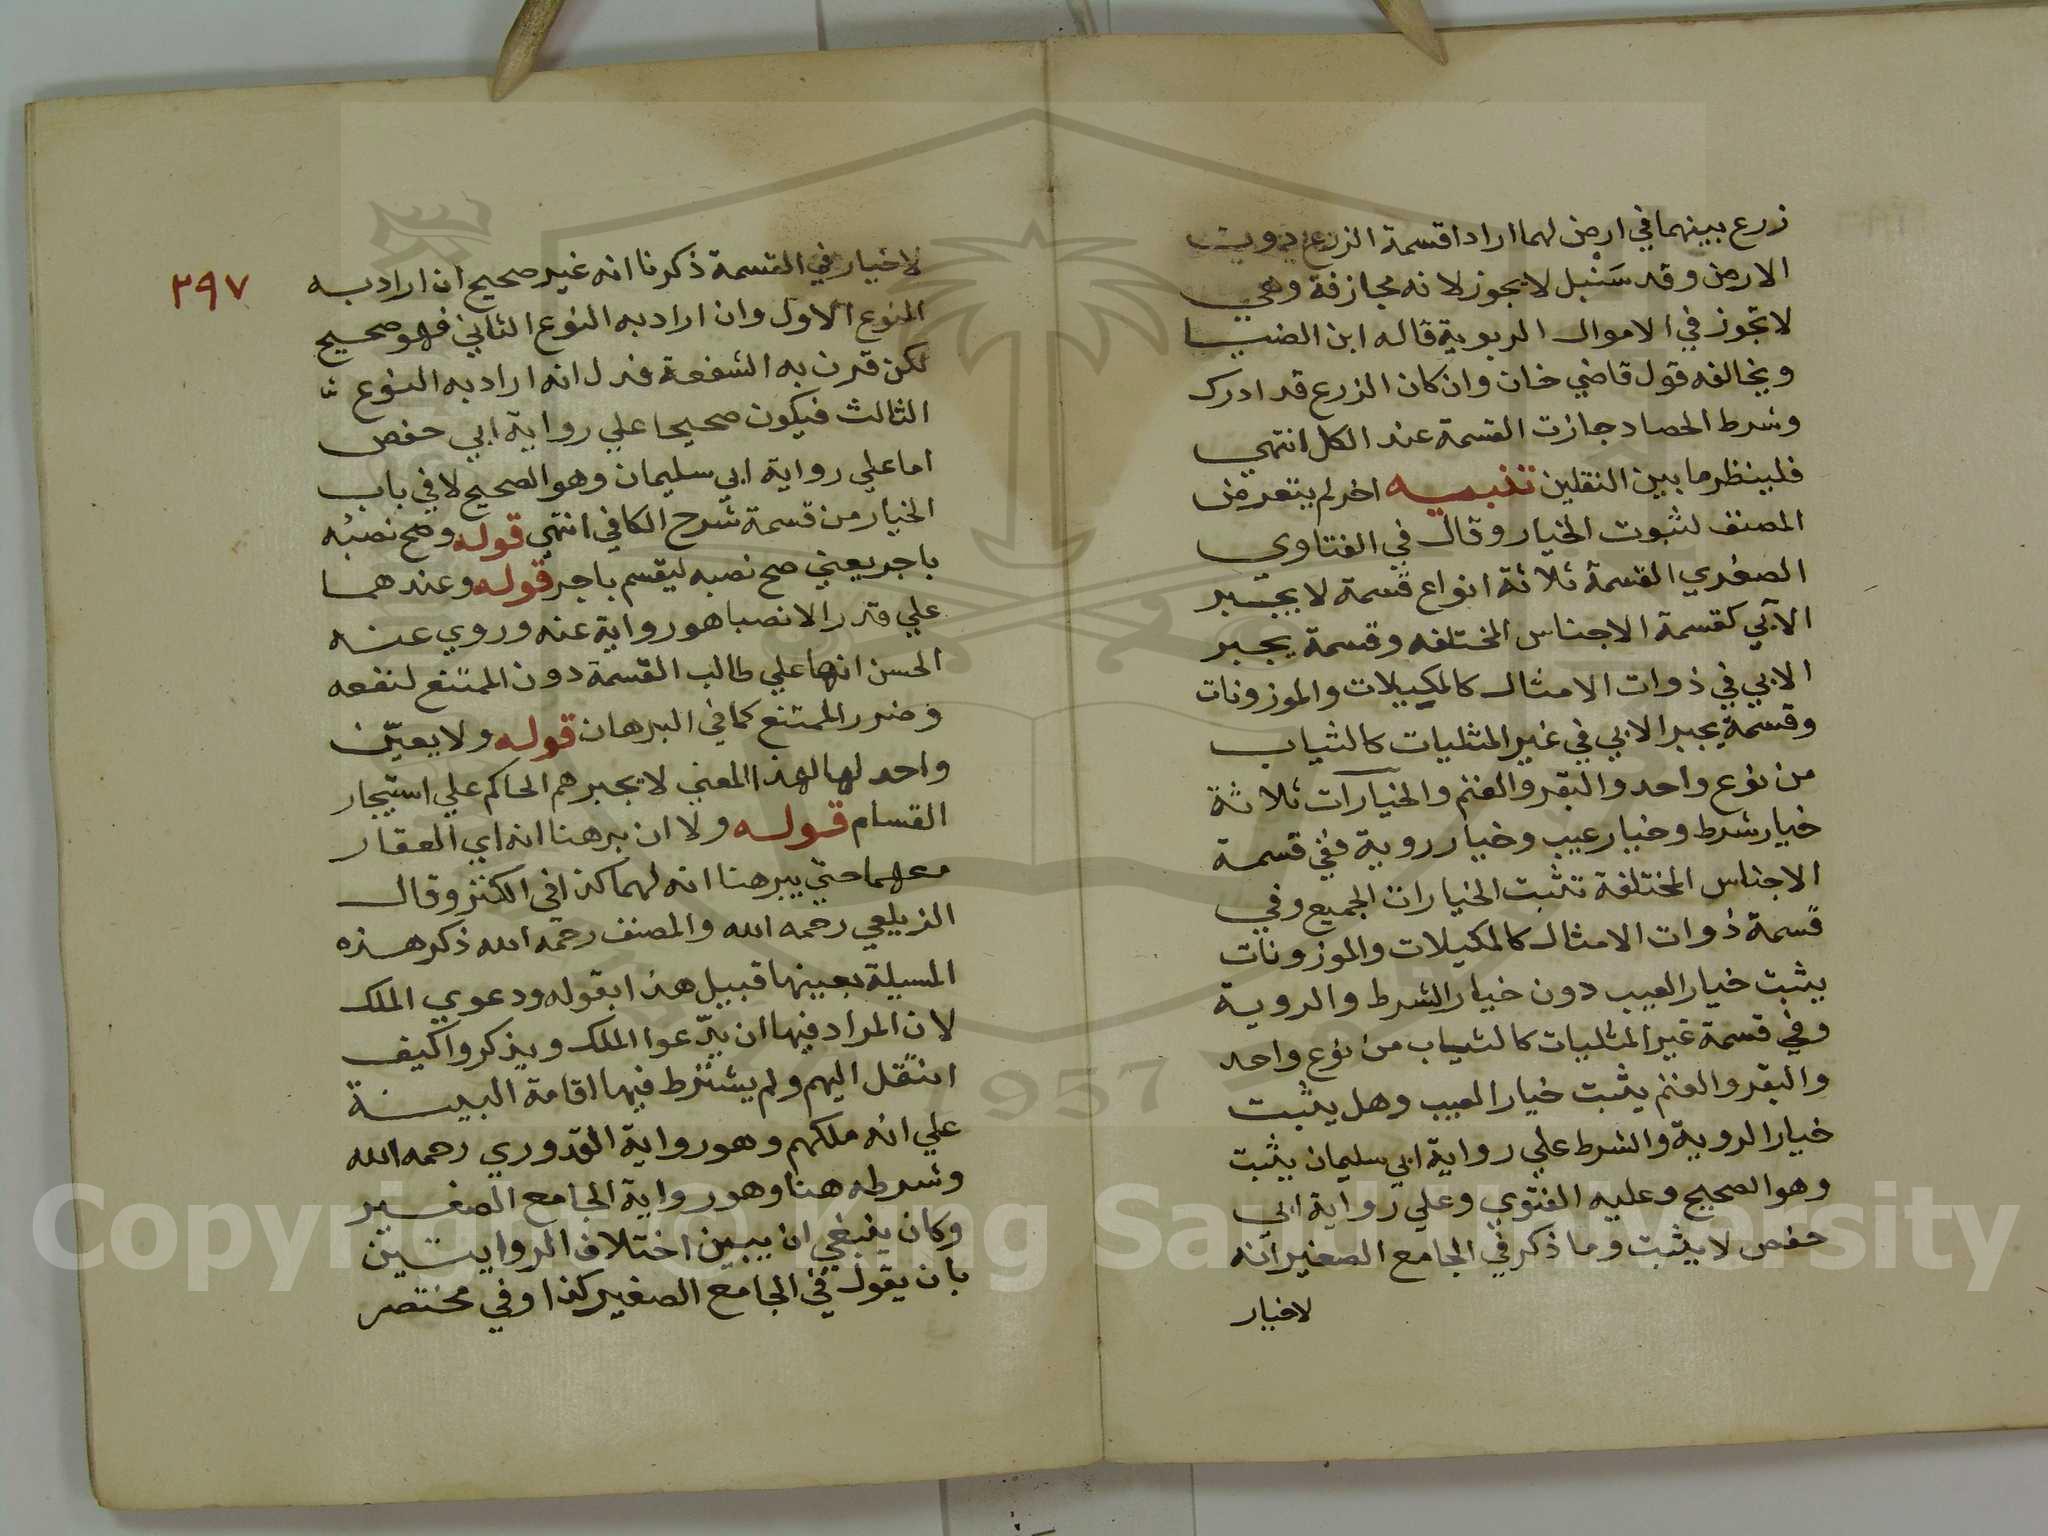 زرع بينهما في ارض لهما ارادا قسمة الزرع دون
الارض وقد سَنْبل لا يجوز لانه مجازفة وهي
لا تجوز في الاموال الربوية قاله ابن الضيا
ويخالفه قول قاضي خان وان كان الزرع قد ادرك
وشرط الحصاد جازت القسمة عند الكل انتهي
فلينظر ما بين النقلين تنبيه اخر لم يتعرض
المصنف لثبوت الخيار وقال في الفتاوي
الصغري القسمة ثلاثة انواع قسمة لا يجبر
الآبي كقسمة الاجناس المختلفه وقسمة يجبر
الابي في ذوات الامثال كالمكيلات والموزونات
وقسمة يجبر الابي في غير المثليات كالثياب
من نوع واحد والبقر والغنم والخيارات ثلاثة
خيار شرط وخيار عيب وخيار روية ففي قسمة
الاجناس المختلفة تثبت الخيارات الجميع وفي
قسمة ذوات الامثال كالمكيلات والموزونات
يثبت خيار العيب دون خيار الشرط والروية
وفي قسمة غير المثليات كالثياب من نوع واحد
والبقر والغنم يثبت خيار العيب وهل يثبت
خيار الروية والشرط علي رواية ابي سليمان يثبت
وهو الصحيح وعليه الفتوي وعلي رواية ابي
حفص لا يثبت وما ذكر في الجامع الصغير انه
لاخيار
٢٩٧
لاخيار في القسمة ذكرنا انه غير صحيح ان اراد به
النوع الاول وان اراد به النوع الثاني فهو صحيح
لكن قرن به الشفعة فدل انه اراد به النوع
الثالث فيكون صحيحا علي رواية ابي حفص
اما علي رواية ابي سليمان وهو الصحيح لا في باب
الخيار من قسمة شرح الكافي انتهي قوله وصح نصبُه
باجر يعني صح نصبه ليقسم باجر قوله وعندهما
علي قدر الانصبا هو رواية عنه وروي عنه
الحسن انها علي طالب القسمة دون الممتنع لنفعه
وضرر الممتنع كما في البرهان قوله ولا يعيّن
واحد لها لهذا المعني لا يجبرهم الحاكم علي استيجار
القسام قوله ولا ان برهنا انه اي العقار
معهما حتي يبرهنا انه لهما كذا في الكنز وقال
الزيلعي رحمه الله والمصنف رحمه الله ذكر هذه
المسيلة بعينها قبيل هذا بقوله ودعوي الملك
لان المراد فيها ان يدّعوا الملك ويذكروا كيف
انتقل اليهم ولم يشترط فيها اقامة البينة
علي انه ملكهم وهو رواية القدوري رحمه الله
وشرطه هنا وهو رواية الجامع الصغير
وكان ينبغي ان يبين اختلاف الروايتين
بان يقول في الجامع الصغير كذا وفي مختصر
1957
Copyright © King Saud University